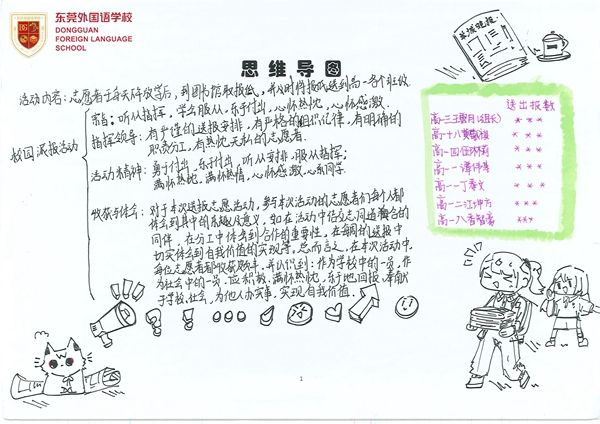 东莞外国语学校
DONGGUAN
FOREIGN LANGUAGE
SCHOOL
思维导图
活动内容：志愿者每天放学后，到图书馆取报纸，并及时将报纸送到高一各个班级
校园派报活动
宗旨：听从指挥，学会服从，乐于付出，心怀热忱，心怀感激
指挥领导：有严谨的送报安排，有严格的组织纪律，有明确的
职责分工，有热忱无私的志愿者
活动者精神：勇于付出，乐于付出，听从安排，服从指挥；
满怀热忱，满怀热情，心怀感激，心系同学
收获与体会：对于本次送报志愿活动，参与本次活动的志愿者们每个人都
体会到其中的乐趣及意义，如在活动中结交志同道合的
同伴，在分工中体会到合作的重要性，在每周的送报中
切实体会到自我价值的实现等，总而言之，在本次活动中，
每位志愿者都收获颇丰，并认识到：作为学校中的一员，作
为社会中的一员，应积极、满怀热忱，乐于地回报、奉献
于学校、社会，为他人办实事，实现自我价值.
晚报
送出报数
高一三王 月(组长) ***
高一十八黄 ****
高一四 ****
高一一 ****
高一一丁 文 ****
高一二江 方 ***
高一八 ***
1